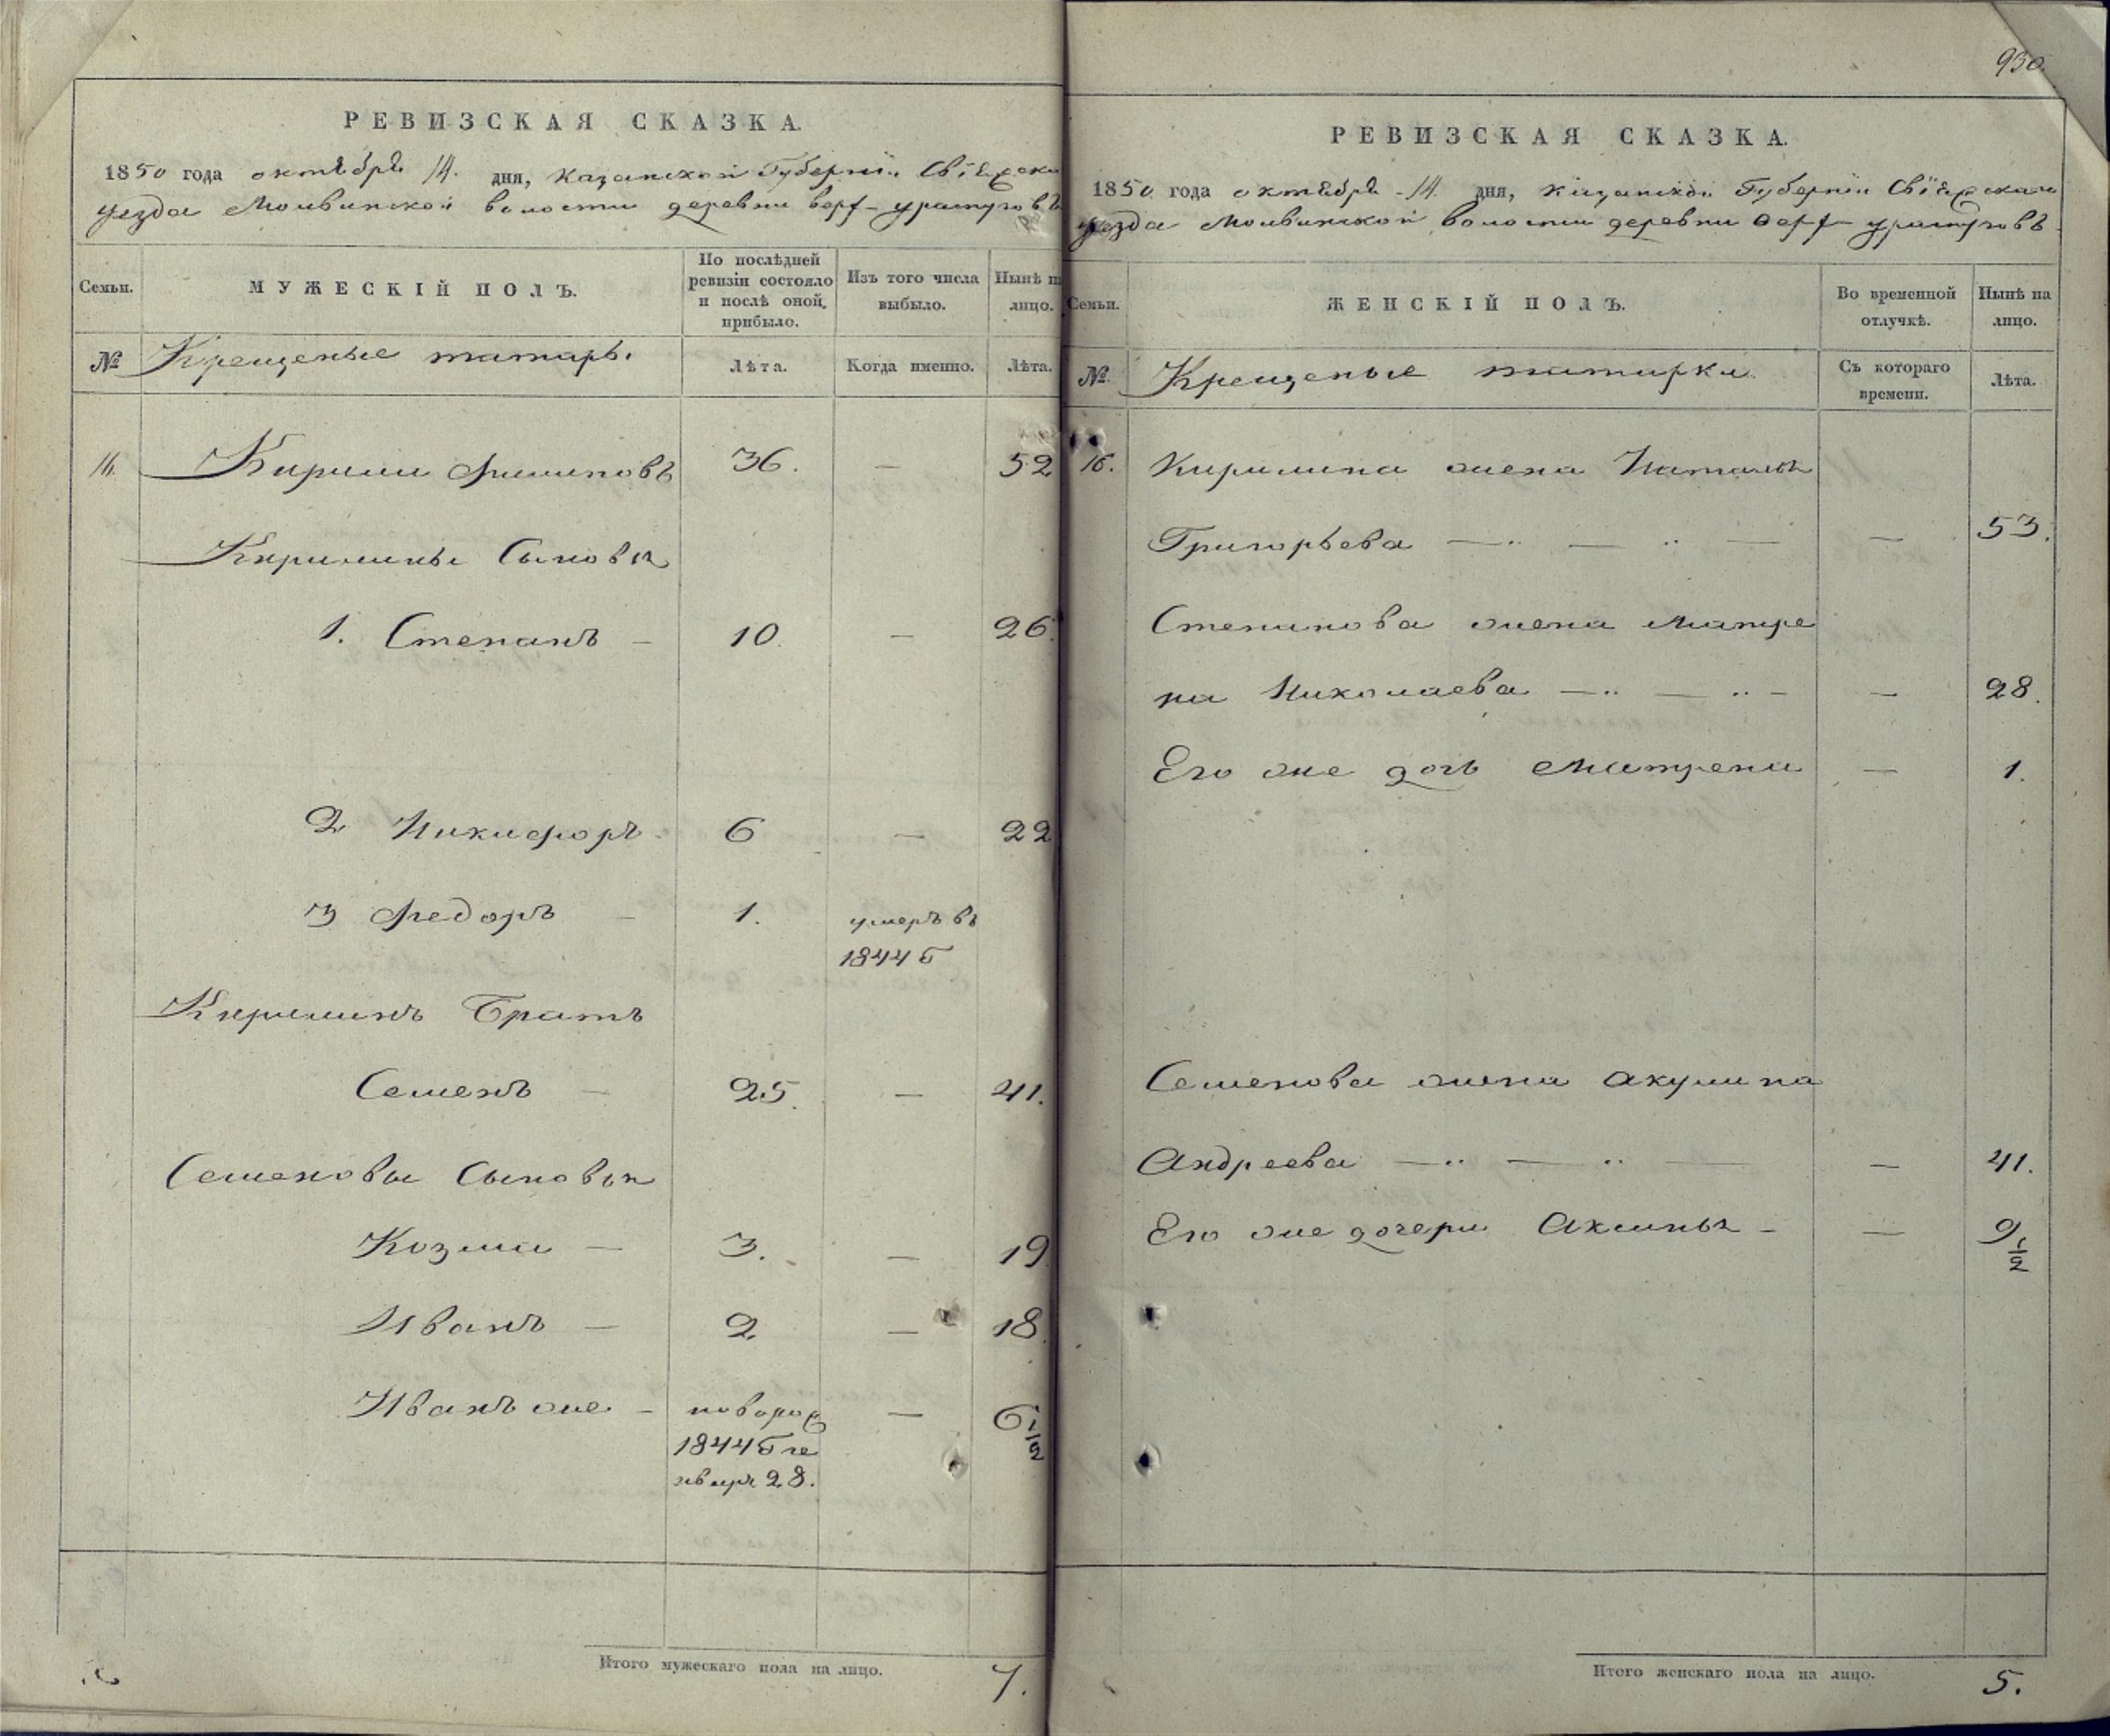 РЕВИЗСКАЯ СКАЗКА.
1850 года октября 14. дня, Казанской Губернiи Свiяжска
уезда Молвинской волости деревни верх-ураспуговъ
Семьи.
МУЖЕСКІЙ ПОЛЪ.
По послѣдней
ревизіи состояло
и послѣ оной,
прибыло.
Изъ того числа
выбыло.
Нынѣ н
лицо.
№
Крещеные татары.
Лѣта.
Когда именно.
Лѣта.
16. Кирили Филиповъ 36. — 52
Кирилины Сыновья
1. Степанъ — 10. — 26.
2 Никифоръ 6 — 22
3 Федоръ — 1. умеръ въ
1844 Г
Кирилинъ Братъ
Семенъ — 25. — 41.
Семеновы Сыновья
Козма — 3. — 19.
Иванъ — 2. — 18.
Иванъ же — новорож — 6 1/2
1844 Г ге
нваря 28.
Итого мужескаго пола на лицо. 7.
930.
РЕВИЗСКАЯ СКАЗКА.
1850 года октября 14. дня, Казанской Губернiи Свiяжскаго
уезда Молвинской волости деревни верх-ураспуговъ
Семьи.
ЖЕНСКІЙ ПОЛЪ.
Во временной
отлучкѣ.
Нынѣ на
лицо.
№.
Крещеные татарки
Съ котораго
времени.
Лѣта.
16. Кирилина жена Наталья
Григорьева — — — — 53.
Степанова жена Матре
на Николаева — — — — 28.
Его же дочь Матрена — 1.
Семенова жена Акулина
Андреева — — — — 41.
Его же дочери Аксинья — — 9 1/2
Итого женскаго пола на лицо. 5.